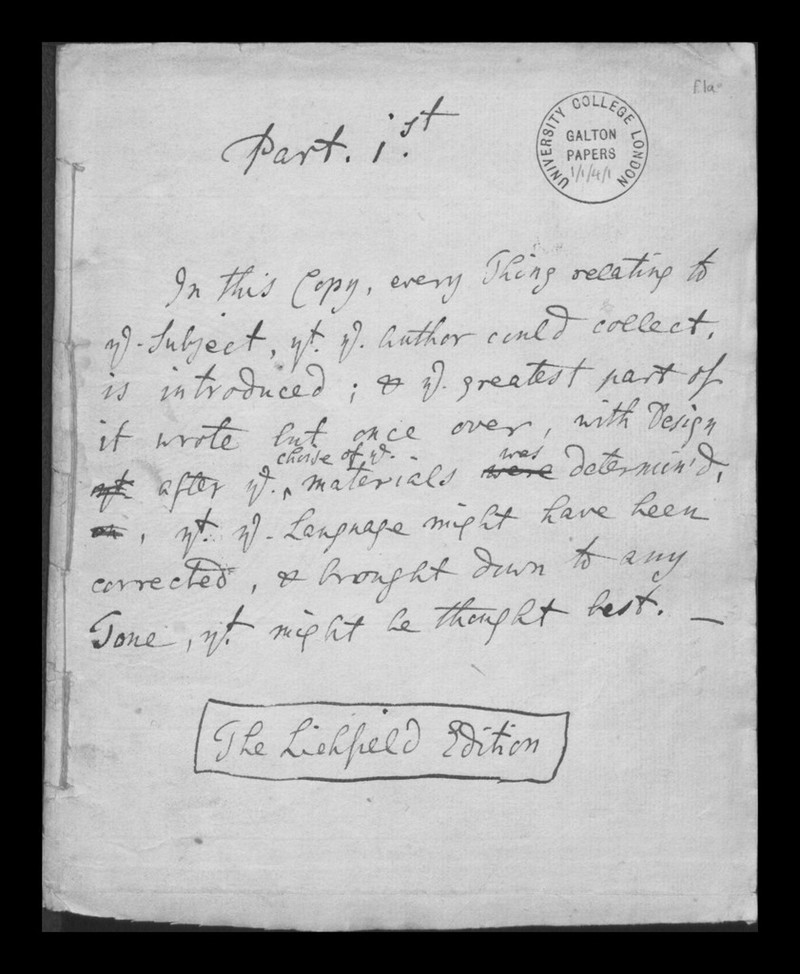 E1a
Part. 1.st
UNIVERSITY COLLEGE LONDON
GALTON
PAPERS
1/1/4/1
In this Copy, every Thing relating to
ye. Subject, yt. ye. Author could collect,
is introduced ; & ye. greatest part of
it wrote but once over, with Design
choise of ye. was
yt. after ye. ‸ materials were determin'd,
, yt. ye. Language might have been
corrected, & brought down to any
Tone, yt. might be thought best. —
The Lichfield Edition